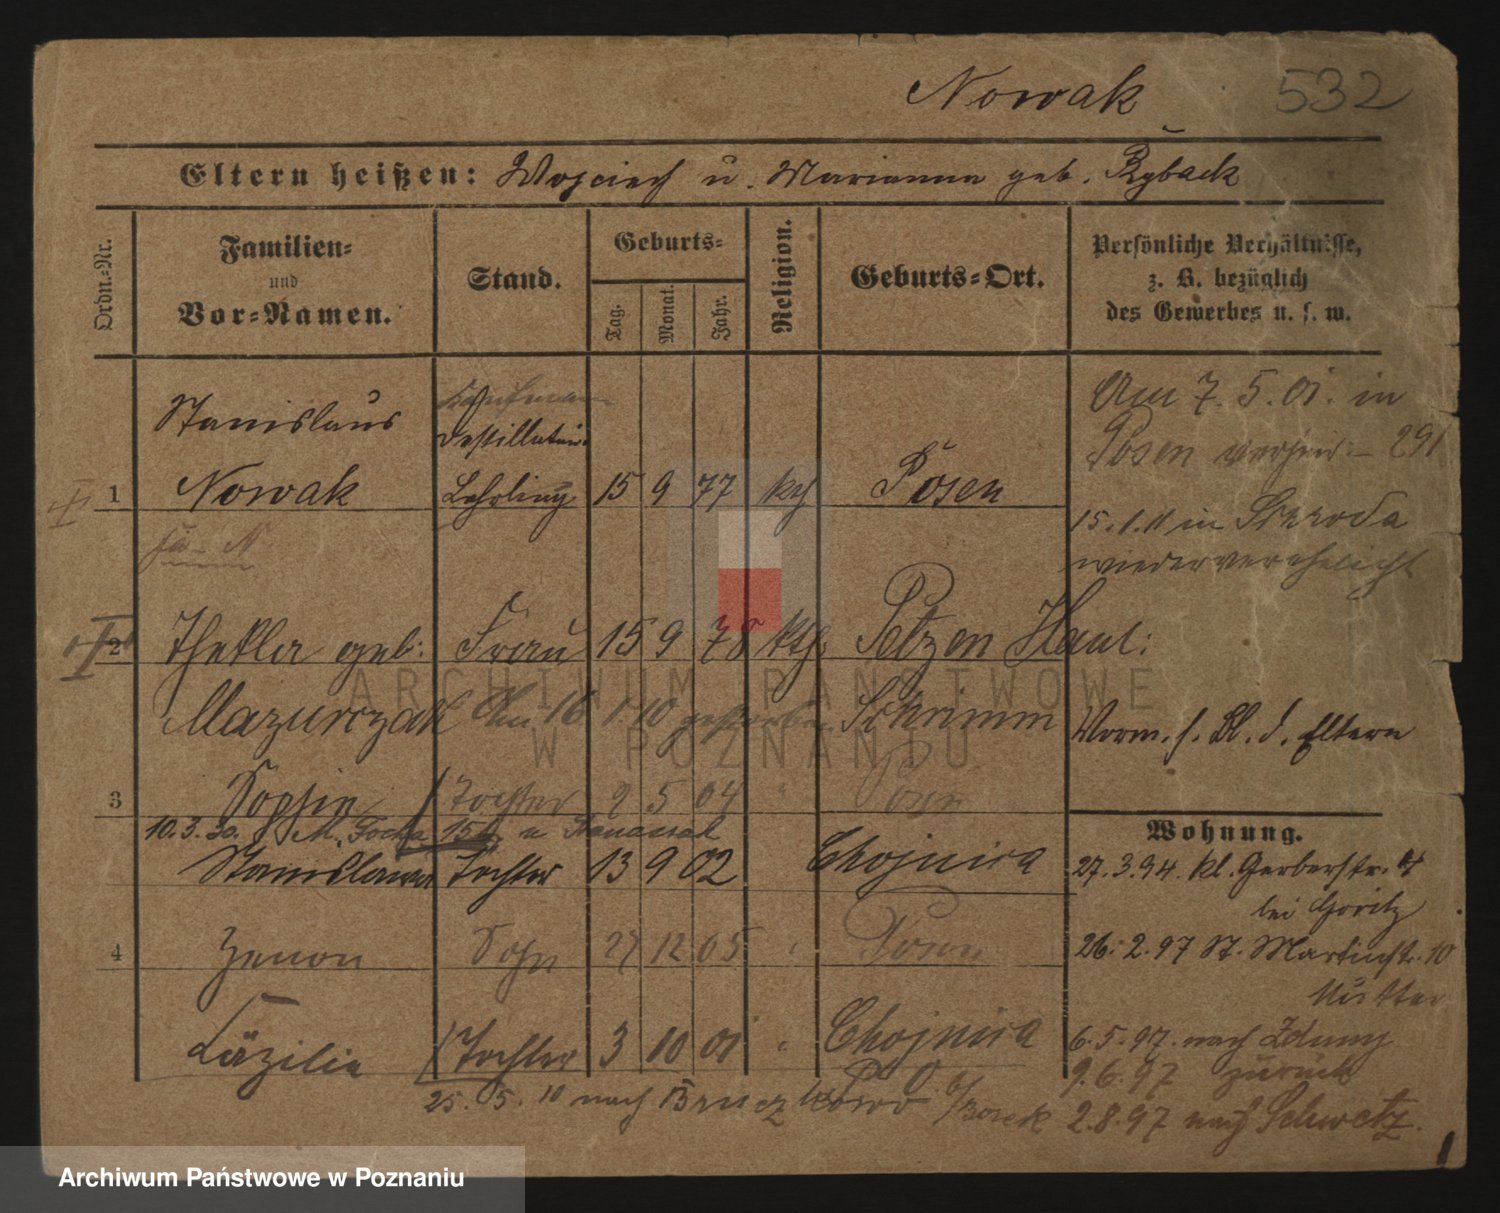 Nowak 532
Eltern heißen: Wojciech u. Marianna geb. Ryback
Ordn.-Nr.
Familien-
und
Vor-Namen.
Stand.
Geburts-
Tag.
Monat.
Jahr.
Religion.
Geburts-Ort.
Persönliche Verhältnisse,
z. B. bezüglich
des Gewerbes u. s. w.
Stanislaus
Kaufmann
Destillateur
Am 7. 5. 01. in
Posen 291
1 Nowak Lehrling 15 9 77 kth Posen
15. 1. 11 in Schroda
wiederverehelicht
2 Thekla geb: Frau 15 9 78 kth. Petzen Haul:
Mazurczak Am 16 1. 10 gestorben Schrimm
Vorm. s. Bl. d. Eltern
3 Sophie Tochter 2 5 04 " Posen
10. 3. 20. 15 u
Stanislawa Tochter 13 9 02 Chojnica
4 Zenon Sohn 27 12 05 " Posen
Cäzilie Tochter 3 10 01 " Chojnica
25. 5. 10 nach Bruczkowo Borek
Wohnung.
27. 3. 94. kl. Gerberstr. 4
bei Goritz
26. 2. 97 St. Martinstr. 10
Mutter
6. 5. 97. nach Zduny
9. 6. 97 zurück
2. 8. 97 nach Schwetz.
ARCHIWUM PAŃSTWOWE
W POZNANIU
Archiwum Państwowe w Poznaniu